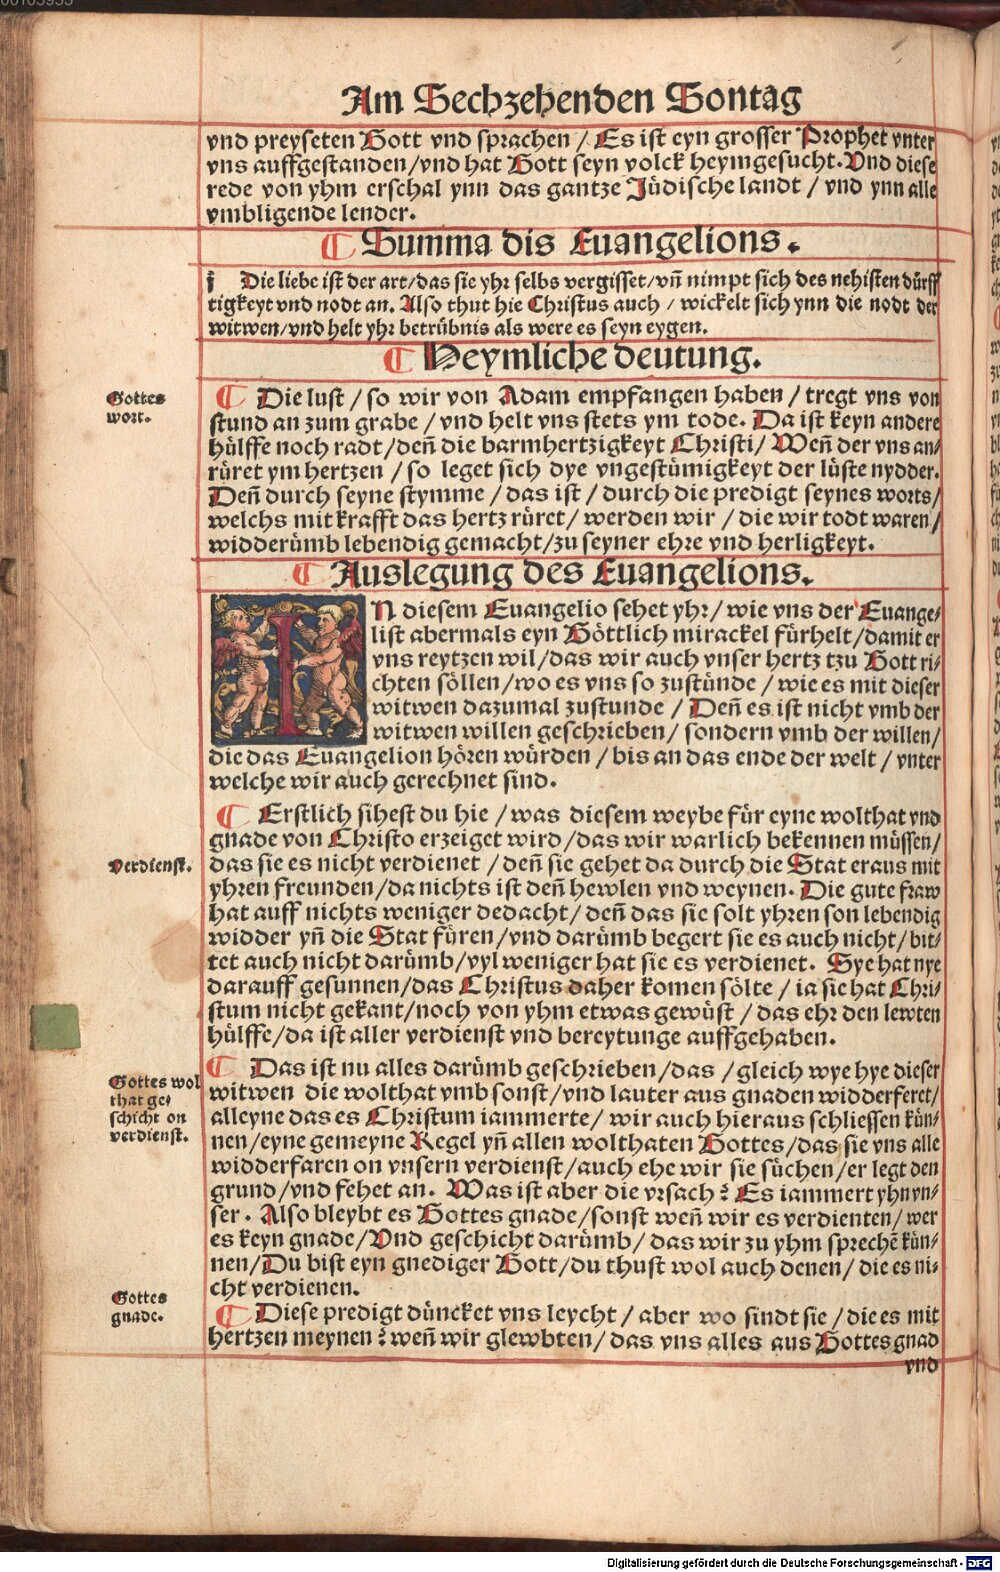 00105955
Am Sechzehenden Sontag
vnd preyseten Gott vnd sprachen / Es ist eyn grosser Prophet vnter
vns auffgestanden/vnd hat Gott seyn volck heymgesucht. Vnd diese
rede von yhm erschal ynn das gantze Jüdische landt / vnd ynn alle
vmbligende lender.
¶ Summa dis Euangelions.
j Die liebe ist der art/das sie yhr selbs vergisset/vñ nimpt sich des nehisten dürff
tigkeyt vnd nodt an. Also thut hie Christus auch / wickelt sich ynn die nodt der
witwen/vnd helt yhr betrübnis als were es seyn eygen.
¶ Heymliche deutung.
Gottes
wort.
¶ Die lust / so wir von Adam empfangen haben / tregt vns von
stund an zum grabe / vnd helt vns stets ym tode. Da ist keyn andere
hülffe noch radt/deñ die barmhertzigkeyt Christi/ Weñ der vns an-
rüret ym hertzen / so leget sich dye vngestümigkeyt der lüste nydder.
Deñ durch seyne stymme / das ist / durch die predigt seynes worts/
welchs mit krafft das hertz rüret/ werden wir / die wir todt waren/
widderümb lebendig gemacht/zu seyner ehre vnd herligkeyt.
¶ Auslegung des Euangelions.
IN diesem Euangelio sehet yhr/ wie vns der Euange-
list abermals eyn Göttlich mirackel fürhelt/damit er
vns reytzen wil/das wir auch vnser hertz tzu Gott ri-
chten söllen/wo es vns so zustünde / wie es mit dieser
witwen dazumal zustunde / Deñ es ist nicht vmb der
witwen willen geschrieben/ sondern vmb der willen/
die das Euangelion hören würden / bis an das ende der welt / vnter
welche wir auch gerechnet sind.
¶ Erstlich sihest du hie / was diesem weybe für eyne wolthat vnd
gnade von Christo erzeiget wird/das wir warlich bekennen müssen/
Verdienst.
das sie es nicht verdienet / deñ sie gehet da durch die Stat eraus mit
yhren freunden/da nichts ist deñ hewlen vnd weynen. Die gute fraw
hat auff nichts weniger dedacht/ deñ das sie solt yhren son lebendig
widder yñ die Stat füren/vnd darümb begert sie es auch nicht/ bit-
tet auch nicht darümb/vyl weniger hat sie es verdienet. Sye hat nye
darauff gesunnen/das Christus daher komen sölte / ia sie hat Chri-
stum nicht gekant/noch von yhm etwas gewüst / das ehr den lewten
hülffe/da ist aller verdienst vnd bereytunge auffgehaben.
Gottes wol
that ge-
schicht on
verdienst.
¶ Das ist nu alles darümb geschrieben/das / gleich wye hye dieser
witwen die wolthat vmb sonst/vnd lauter aus gnaden widderferet/
alleyne das es Christum iammerte/ wir auch hieraus schliessen kün-
nen/eyne gemeyne Regel yñ allen wolthaten Gottes/das sie vns alle
widderfaren on vnsern verdienst/auch ehe wir sie süchen/er legt den
grund/vnd fehet an. Was ist aber die vrsach? Es iammert yhn vn-
ser. Also bleybt es Gottes gnade/sonst weñ wir es verdienten/ wer
es keyn gnade/Vnd geschicht darümb/ das wir zu yhm sprechē kün-
nen/Du bist eyn gnediger Gott/du thust wol auch denen/ die es ni-
cht verdienen.
Gottes
gnade.
¶ Diese predigt düncket vns leycht / aber wo sindt sie / die es mit
hertzen meynen? weñ wir glewbten/das vns alles aus Gottes gnad
vnd
Digitalisierung gefördert durch die Deutsche Forschungsgemeinschaft - DFG